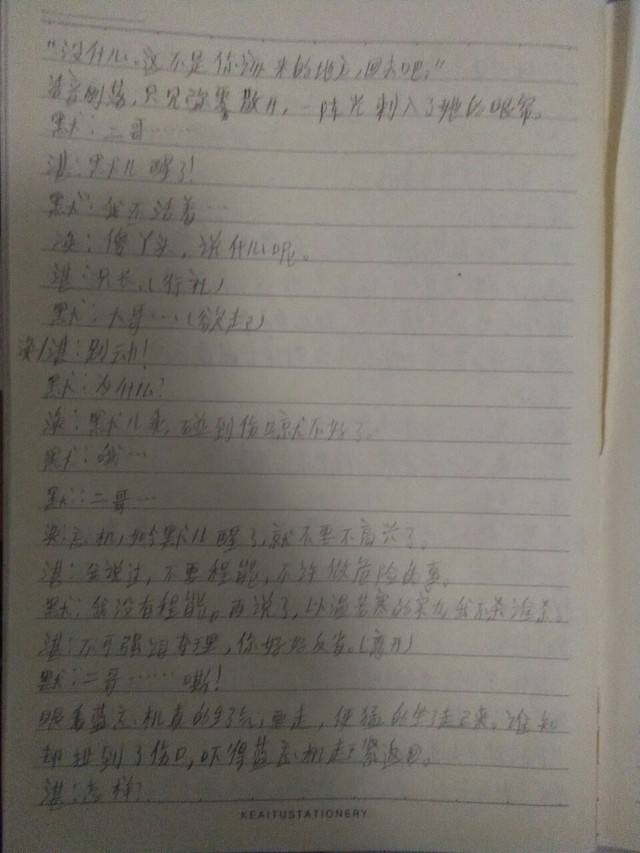 “没什么。这不是你该来的地方,回去吧。”
话音刚落,只见弥雾散开,一阵光刺入了她的眼帘。
默:二哥……
湛:默儿醒了!
默:我还活着…
涣:傻丫头,说什么呢。
湛:兄长。(行礼)
默:大哥…(欲起)
涣/湛:别动!
默:为什么?
涣:默儿乖,碰到伤口就不好了。
默:哦…
默:二哥…
涣:忘机,如今默儿醒了,就不要不高兴了。
湛:全说过,不要逞能,不许做危险的事。
默:我没有逞能。再说了,以温若寒的实力,我不杀谁杀。
湛:不可强词夺理,你好好反省。(离开)
默:二哥…… 嘶!
眼看蓝忘机真的生了气,要走,便猛的坐了起来。谁知
却扯到了伤口,吓得蓝忘机赶紧返回。
湛:怎样?
KEAITUSTATIONERY